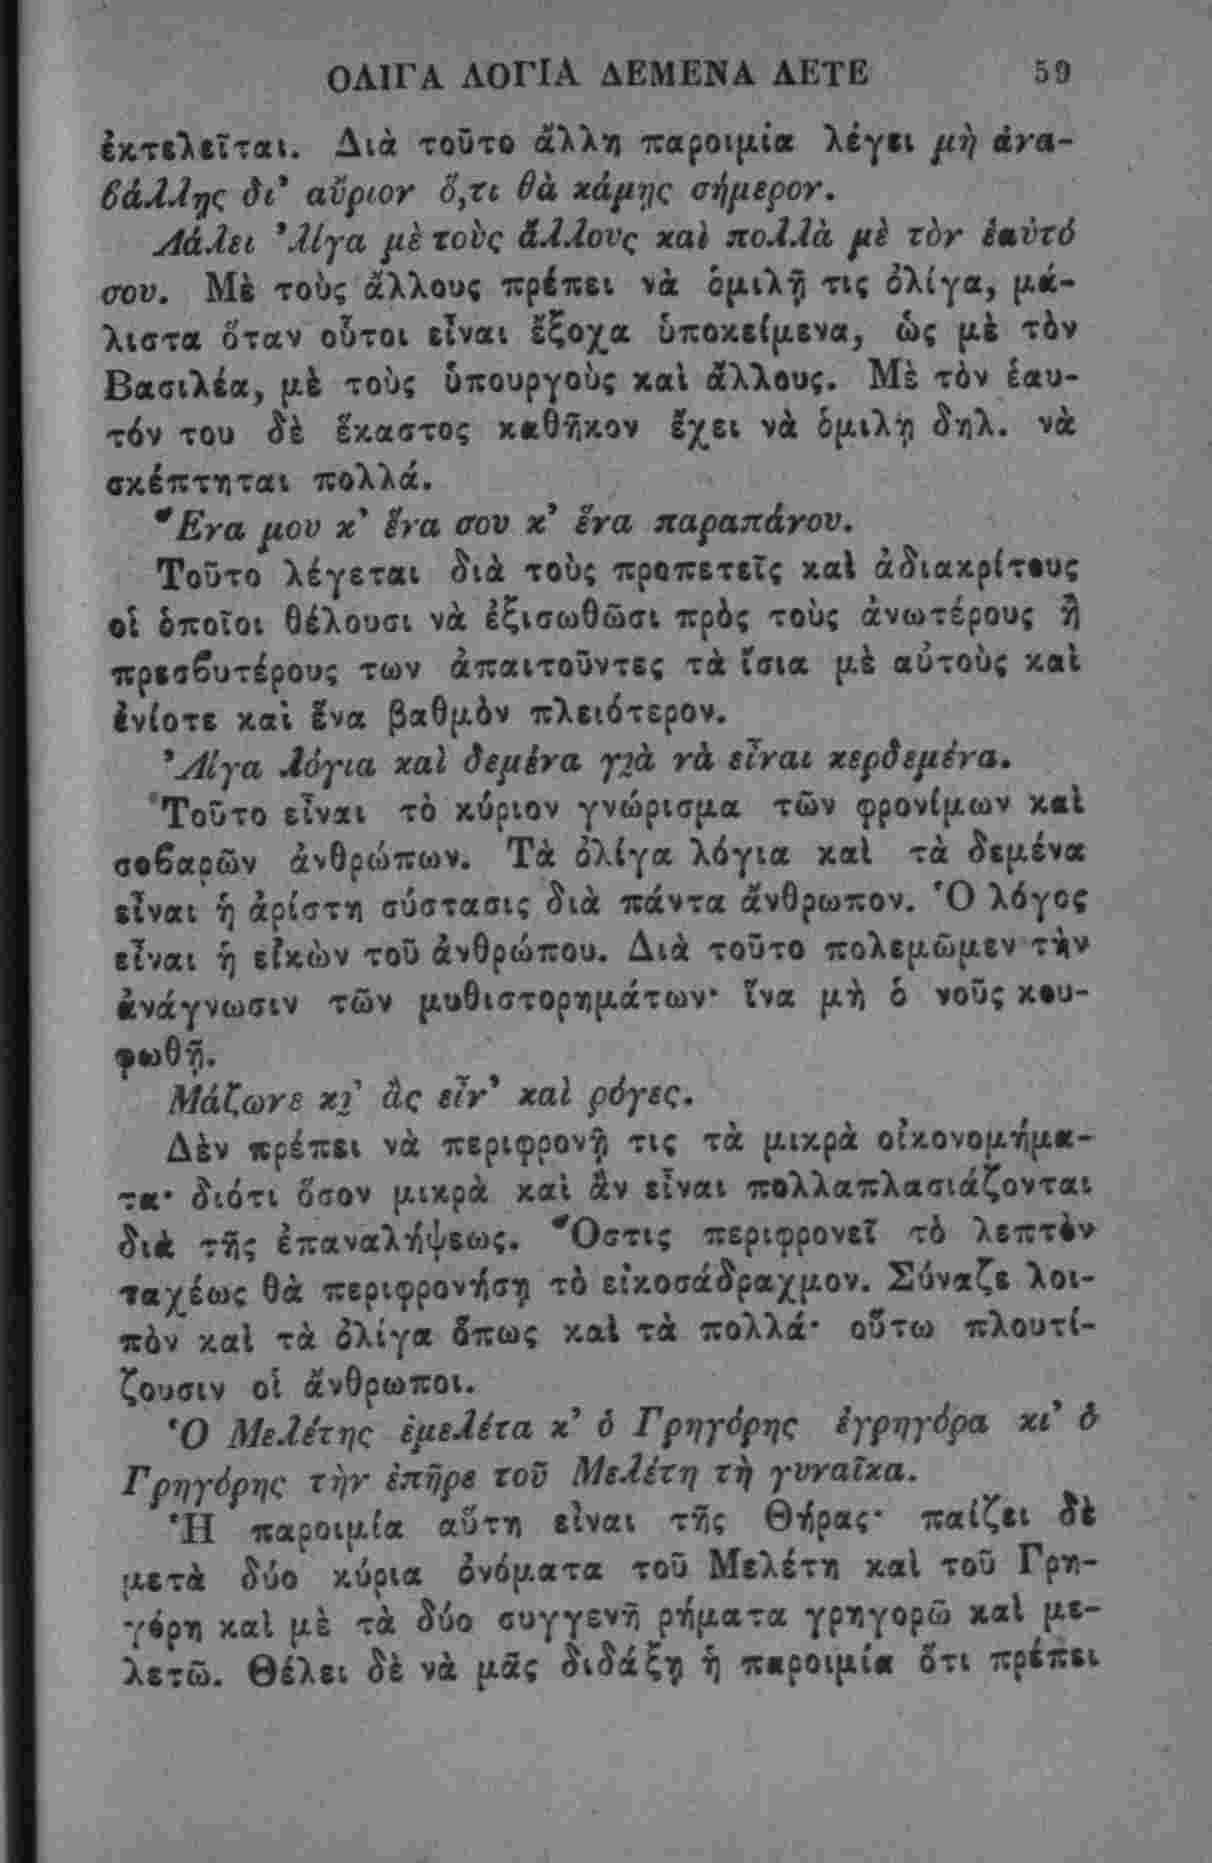 ΟΛΙΓΑ ΛΟΓΙΑ ΔΕΜΕΝΑ ΛΕΤΕ 59
ἐκτελεῖται. Διὰ τοῦτο ἄλλη παροιμία λέγει μὴ ἀνα-
βάλλῃς δι' αὔριον ὅ,τι θὰ κάμῃς σήμερον.
Λάλει 'λίγα μὲ τοὺς ἄλλους καὶ πολλὰ μὲ τὸν ἑαυτό
σου. Μὲ τοὺς ἄλλους πρέπει νὰ ὁμιλῇ τις ὀλίγα, μά-
λιστα ὅταν οὗτοι εἶναι ἔξοχα ὑποκείμενα, ὡς μὲ τὸν
Βασιλέα, μὲ τοὺς ὑπουργοὺς καὶ ἄλλους. Μὲ τὸν ἑαυ-
τόν του δὲ ἕκαστος καθῆκον ἔχει νὰ ὁμιλῇ δηλ. νὰ
σκέπτηται πολλά.
Ἕνα μου κ' ἕνα σου κ' ἕνα παραπάνου.
Τοῦτο λέγεται διὰ τοὺς προπετεῖς καὶ ἀδιακρίτους
οἱ ὁποῖοι θέλουσι νὰ ἐξισωθῶσι πρὸς τοὺς ἀνωτέρους ἢ
πρεσβυτέρους των ἀπαιτοῦντες τὰ ἴσια μὲ αὐτοὺς καὶ
ἐνίοτε καὶ ἕνα βαθμὸν πλειότερον.
'Λίγα λόγια καὶ δεμένα γιὰ νὰ εἶναι κερδεμένα.
Τοῦτο εἶναι τὸ κύριον γνώρισμα τῶν φρονίμων καὶ
σοβαρῶν ἀνθρώπων. Τὰ ὀλίγα λόγια καὶ τὰ δεμένα
εἶναι ἡ ἀρίστη σύστασις διὰ πάντα ἄνθρωπον. Ὁ λόγος
εἶναι ἡ εἰκὼν τοῦ ἀνθρώπου. Διὰ τοῦτο πολεμῶμεν τὴν
ἀνάγνωσιν τῶν μυθιστορημάτων· ἵνα μὴ ὁ νοῦς κου-
φωθῇ.
Μάζωνε κι' ἂς εἶν' καὶ ρόγες.
Δὲν πρέπει νὰ περιφρονῇ τις τὰ μικρὰ οἰκονομήμα-
τα· διότι ὅσον μικρὰ καὶ ἂν εἶναι πολλαπλασιάζονται
διὰ τῆς ἐπαναλήψεως. Ὅστις περιφρονεῖ τὸ λεπτὸν
ταχέως θὰ περιφρονήσῃ τὸ εἰκοσάδραχμον. Σύναζε λοι-
πὸν καὶ τὰ ὀλίγα ὅπως καὶ τὰ πολλά· οὕτω πλουτί-
ζουσιν οἱ ἄνθρωποι.
Ὁ Μελέτης ἐμελέτα κ' ὁ Γρηγόρης ἐγρηγόρα κι' ὁ
Γρηγόρης τὴν ἐπῆρε τοῦ Μελέτη τὴ γυναῖκα.
Ἡ παροιμία αὕτη εἶναι τῆς Θήρας· παίζει δὲ
μετὰ δύο κύρια ὀνόματα τοῦ Μελέτη καὶ τοῦ Γρη-
γόρη καὶ μὲ τὰ δύο συγγενῆ ρήματα γρηγορῶ καὶ με-
λετῶ. Θέλει δὲ νὰ μᾶς διδάξῃ ἡ παροιμία ὅτι πρέπει